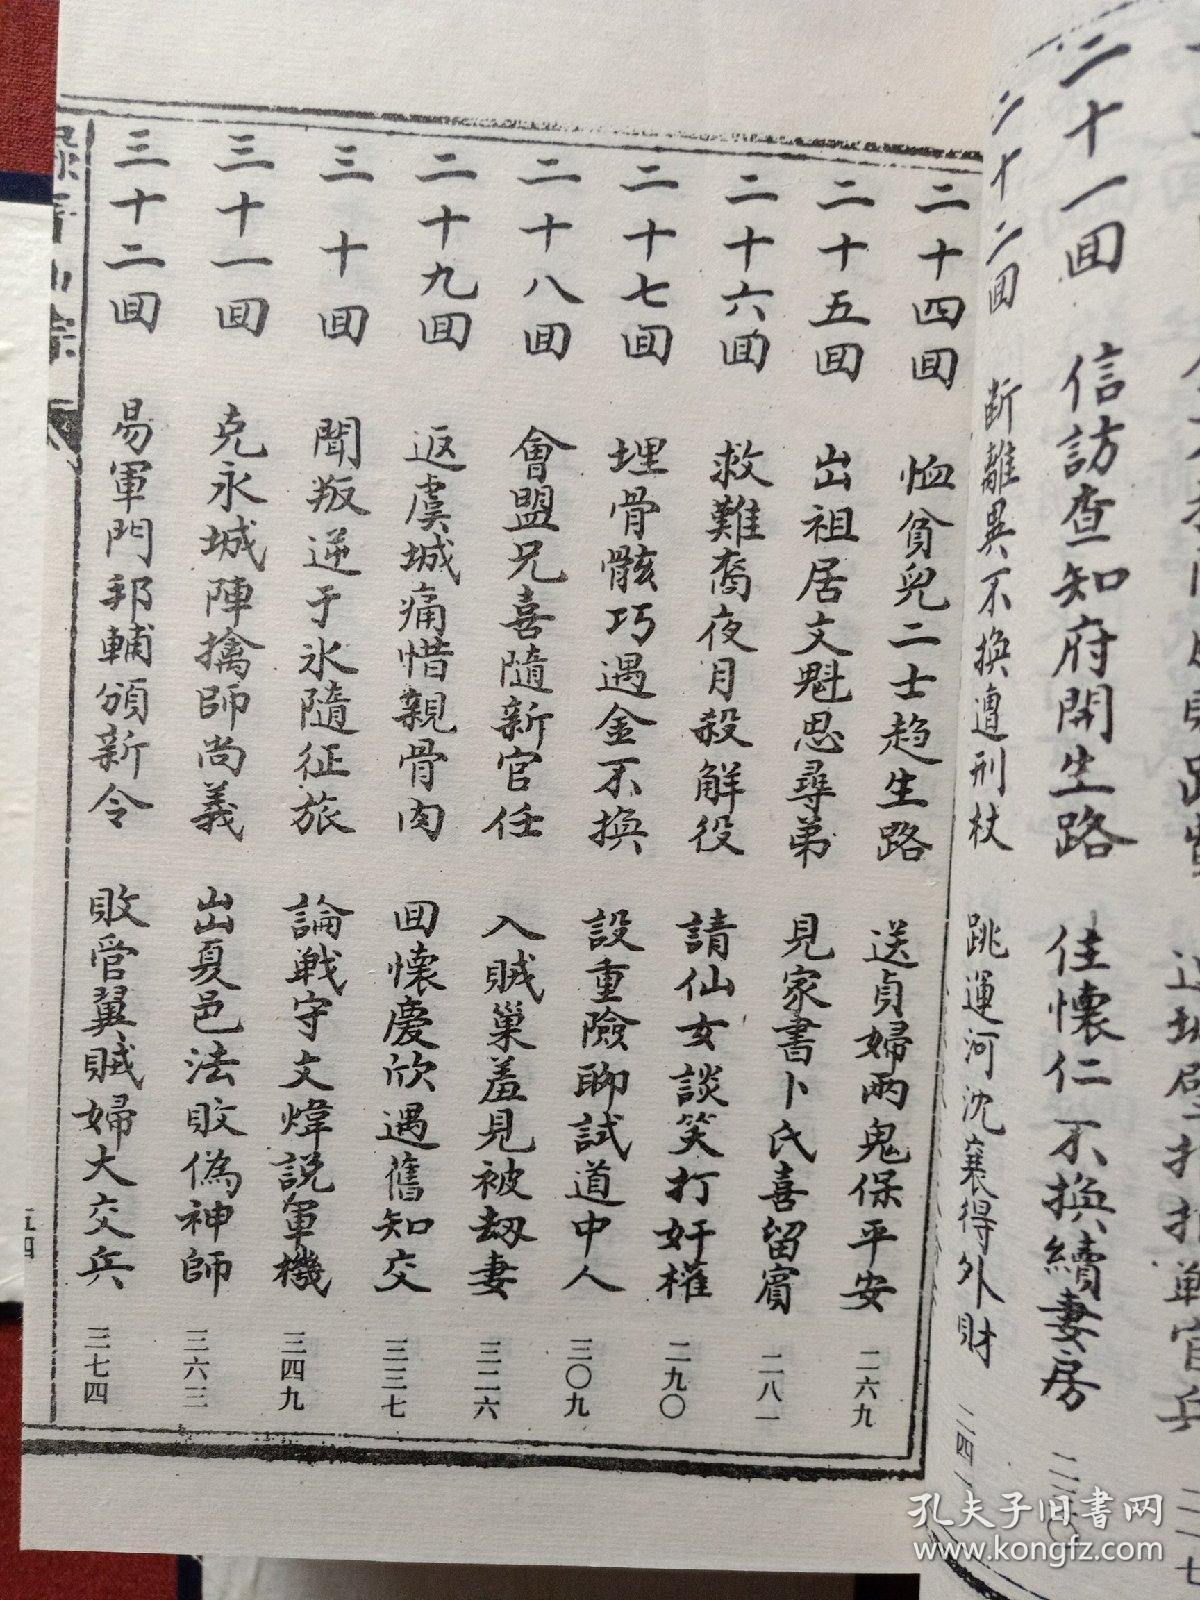 二十一回 信訪查知府開生路 住懷仁不換續妻房
二十二回 断離異不換遭刑杖 跳運河沈襄得外財
二十四回 恤貧兒二士趋生路 送貞婦兩鬼保平安 二六九
二十五回 出祖居文魁思尋弟 見家書卜氏喜留賓 二八一
二十六回 救難裔夜月殺解役 請仙女談笑打奸權 二九〇
二十七回 埋骨骸巧遇金不换 設重險聊試道中人 三〇九
二十八回 會盟兄喜隨新官任 入賊巢羞見被刼妻 三二六
二十九回 返虞城痛惜親骨肉 回懷慶欣遇舊知交 三三七
三十回 聞叛逆于氷隨征旅 論戰守文煒説軍機 三四九
三十一回 克永城陣擒師尚義 出夏邑法敗偽神師 三六三
三十二回 易軍門邦輔頒新令 敗管翼賊婦大交兵 三七四
五四
孔夫子旧书网
www.kongfz.com